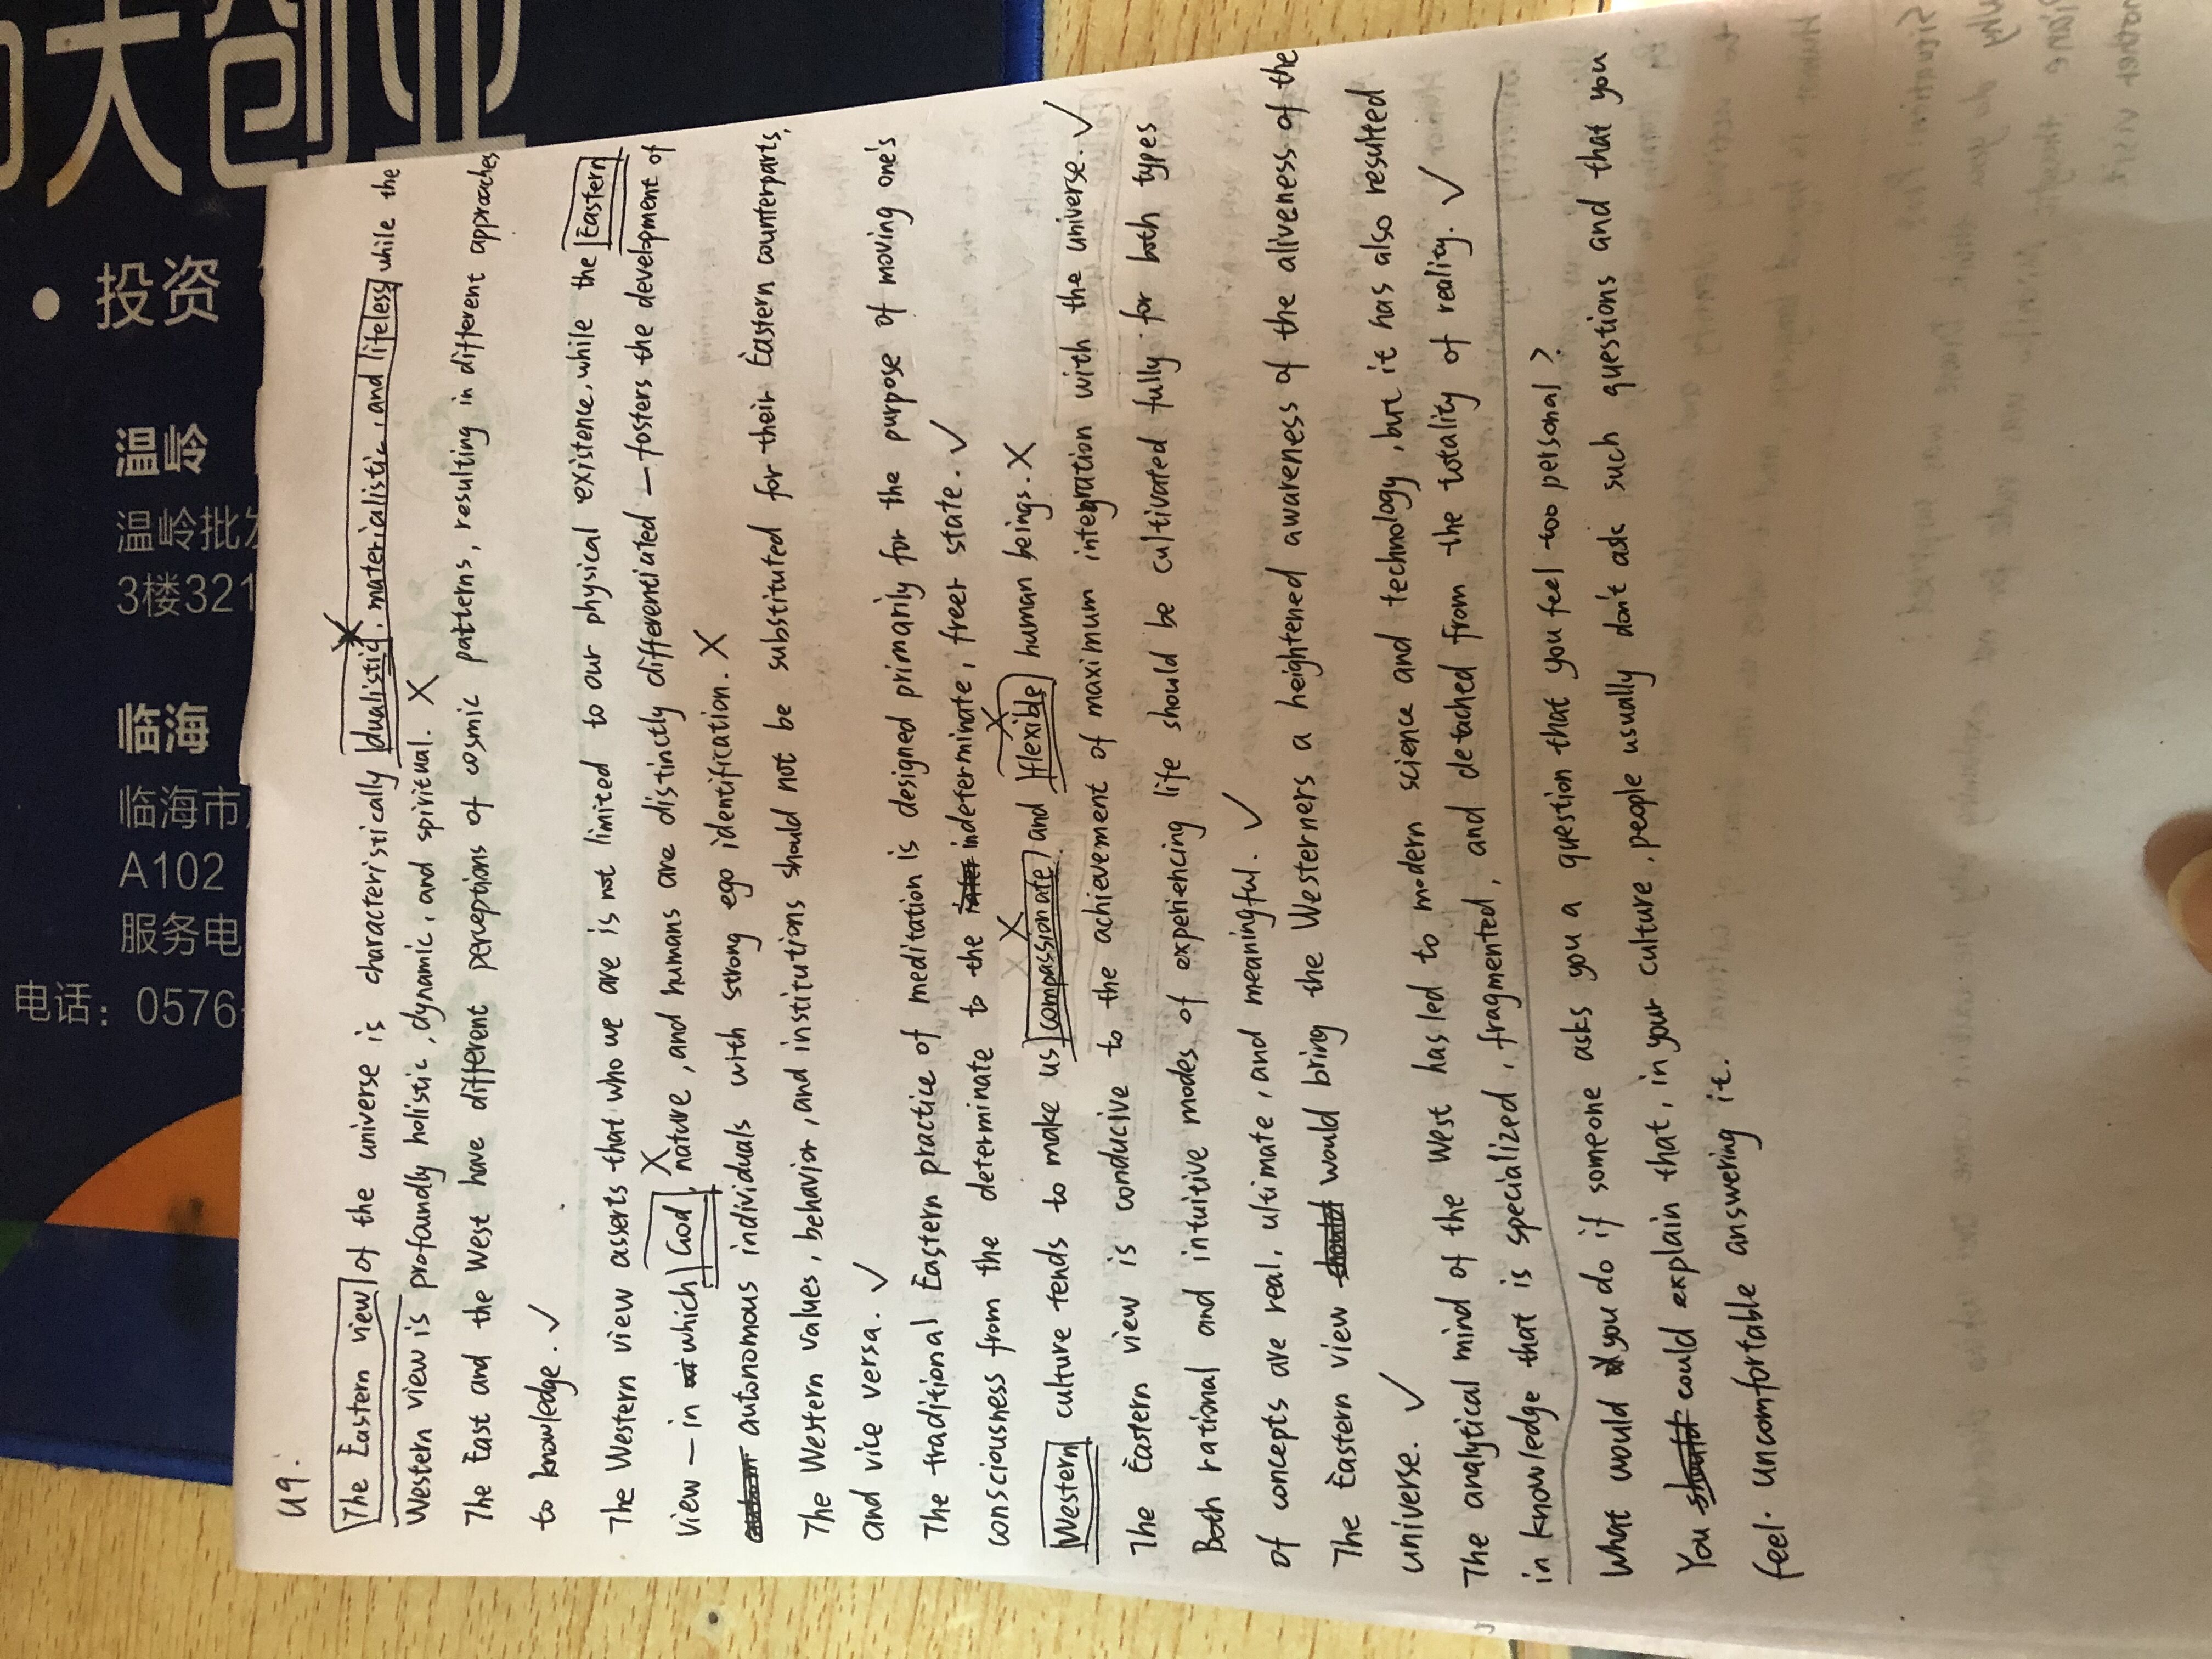 U9.
The Eastern view of the universe is characteristically dualistic, materialistic, and lifeless while the
Western view is profoundly holistic, dynamic, and spiritual. ×
The East and the West have different perceptions of cosmic patterns, resulting in different approaches
to knowledge. ✓
The Western view asserts that who we are is not limited to our physical existence, while the Eastern
view — in which God, nature, and humans are distinctly differentiated — fosters the development of
autonomous individuals with strong ego identification. ×
The Western values, behavior, and institutions should not be substituted for their Eastern counterparts,
and vice versa. ✓
The traditional Eastern practice of meditation is designed primarily for the purpose of moving one's
consciousness from the determinate to the indeterminate, freer state. ✓
Western culture tends to make us compassionate and flexible human beings. ×
The Eastern view is conducive to the achievement of maximum integration with the universe. ✓
Both rational and intuitive modes of experiencing life should be cultivated fully for both types
of concepts are real, ultimate, and meaningful. ✓
The Eastern view should would bring the Westerners a heightened awareness of the aliveness of the
universe. ✓
The analytical mind of the West has led to modern science and technology, but it has also resulted
in knowledge that is specialized, fragmented, and detached from the totality of reality. ✓
What would you do if someone asks you a question that you feel too personal?
You should could explain that, in your culture, people usually don't ask such questions and that you
feel uncomfortable answering it.
大创业
投资
温岭
温岭批发
3楼321
临海
临海市
A102
服务电
电话：0576-